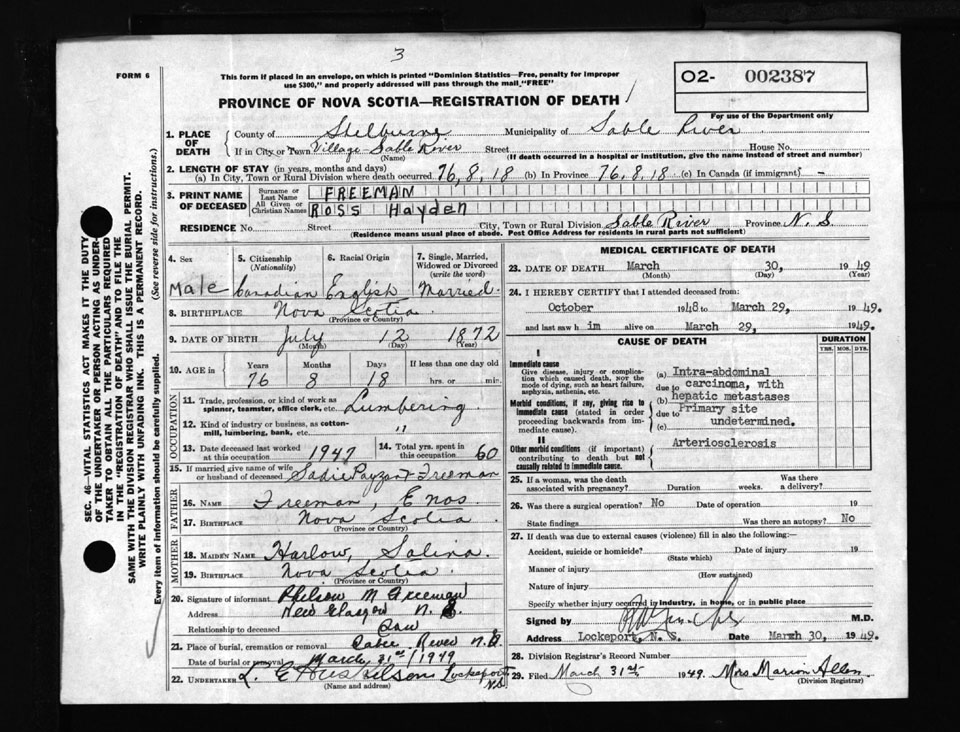 3
FORM 6
This form if placed in an envelope, on which is printed "Dominion Statistics—Free, penalty for improper
use $300," and properly addressed will pass through the mail "FREE"
O2- 002387
For use of the Department only
PROVINCE OF NOVA SCOTIA—REGISTRATION OF DEATH
SEC. 46—VITAL STATISTICS ACT MAKES IT THE DUTY
OF THE UNDERTAKER OR PERSON ACTING AS UNDER-
TAKER TO OBTAIN ALL THE PARTICULARS REQUIRED
IN THE "REGISTRATION OF DEATH" AND TO FILE THE
SAME WITH THE DIVISION REGISTRAR WHO SHALL ISSUE THE BURIAL PERMIT.
WRITE PLAINLY WITH UNFADING INK. THIS IS A PERMANENT RECORD.
Every item of information should be carefully supplied. (See reverse side for instructions.)
1. PLACE OF DEATH County of Shelburne Municipality of Sable River
If in City or Town Village Sable River Street House No.
(Name) (If death occurred in a hospital or institution, give the name instead of street and number)
2. LENGTH OF STAY (in years, months and days)
(a) In City, Town or Rural Division where death occurred 76, 8, 18 (b) In Province 76, 8, 18 (c) In Canada (if immigrant) -
3. PRINT NAME OF DECEASED Surname or Last Name FREEMAN
All Given or Christian Names ROSS Hayden
RESIDENCE No. Street City, Town or Rural Division Sable River Province N. S
(Residence means usual place of abode. Post Office Address for residents in rural parts not sufficient)
4. Sex 5. Citizenship (Nationality) 6. Racial Origin 7. Single, Married, Widowed or Divorced (write the word)
Male Canadian English Married
8. BIRTHPLACE Nova Scotia
(Province or Country)
9. DATE OF BIRTH July 12 1872
(Month) (Day) (Year)
10. AGE in Years Months Days If less than one day old
76 8 18 hrs. or min.
OCCUPATION
11. Trade, profession, or kind of work as spinner, teamster, office clerk, etc. Lumbering
12. Kind of industry or business, as cotton-mill, lumbering, bank, etc. "
13. Date deceased last worked at this occupation 1947 14. Total yrs. spent in this occupation 60
15. If married give name of wife or husband of deceased Sadie Payzant Freeman
FATHER
16. NAME Freeman, Enos
17. BIRTHPLACE Nova Scotia
(Province or Country)
MOTHER
18. MAIDEN NAME Harlow, Salina
19. BIRTHPLACE Nova Scotia
(Province or Country)
20. Signature of informant M Freeman
Address New Glasgow N. S.
Relationship to deceased Son
21. Place of burial, cremation or removal Sable River N.S.
Date of burial or removal March 31st/1949
22. UNDERTAKER Lockeport N.S.
(Name and address)
MEDICAL CERTIFICATE OF DEATH
23. DATE OF DEATH March 30, 1949
(Month) (Day) (Year)
24. I HEREBY CERTIFY that I attended deceased from:
October 1948 to March 29, 1949.
and last saw h im alive on March 29, 1949.
CAUSE OF DEATH DURATION
YRS. MOS. DYS.
I
Immediate cause
Give disease, injury or complication which caused death, NOT the mode of dying, such as heart failure, asphyxia, asthenia, etc.
(a) Intra-abdominal
due to carcinoma, with
Morbid conditions, if any, giving rise to immediate cause (stated in order proceeding backwards from immediate cause).
(b) hepatic metastases
due to Primary site
(c) undetermined.
II
Other morbid conditions (if important) contributing to death but not causally related to immediate cause.
Arteriosclerosis
25. If a woman, was the death associated with pregnancy? Duration weeks. Was there a delivery?
26. Was there a surgical operation? No Date of operation 19
State findings Was there an autopsy? No
27. If death was due to external causes (violence) fill in also the following:
Accident, suicide or homicide? Date of injury 19
(State which)
Manner of injury
(How sustained)
Nature of injury
Specify whether injury occurred in industry, in home, or in public place
Signed by M.D.
Address Lockeport, N. S. Date March 30, 1949.
28. Division Registrar's Record Number
29. Filed March 31st 1949. Mrs Marion Allen
(Division Registrar)